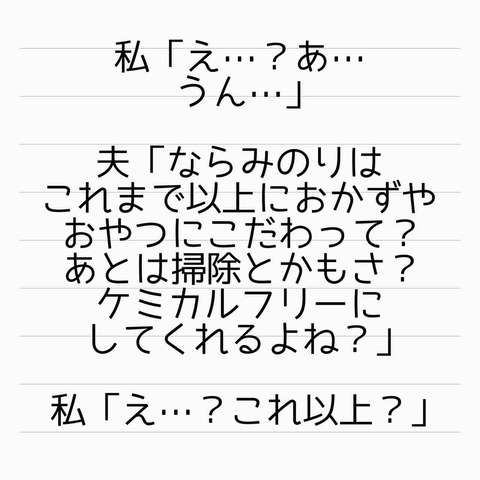 私「え…？あ…
うん…」
夫「ならみのりは
これまで以上におかずや
おやつにこだわって？
あとは掃除とかもさ？
ケミカルフリーに
してくれるよね？」
私「え…？これ以上？」